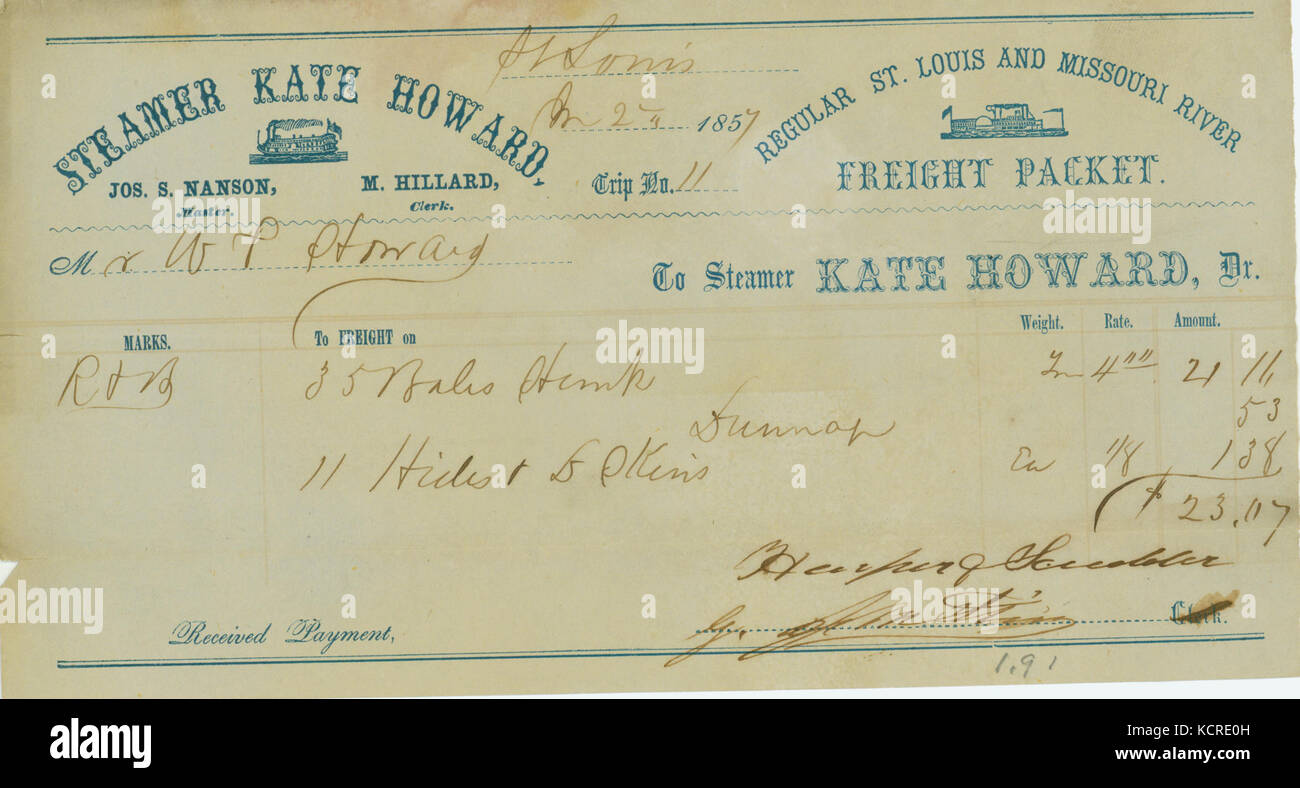 STEAMER KATE HOWARD,
JOS. S. NANSON,
Master.
M. HILLARD,
Clerk.
St Louis
2 1857
Trip No. 11
REGULAR ST. LOUIS AND MISSOURI RIVER
FREIGHT PACKET.
Mr W P Howard
To Steamer KATE HOWARD, Dr.
MARKS. To FREIGHT on Weight. Rate. Amount.
R & B 35 Bales Hemp 4 21 16
53
11 Hides & Skins Ea 1/8 1 38
$ 23.07
Harper & Scudder
Received Payment, Clerk.
1.91
alamy
Image ID: KCRE0H
www.alamy.com